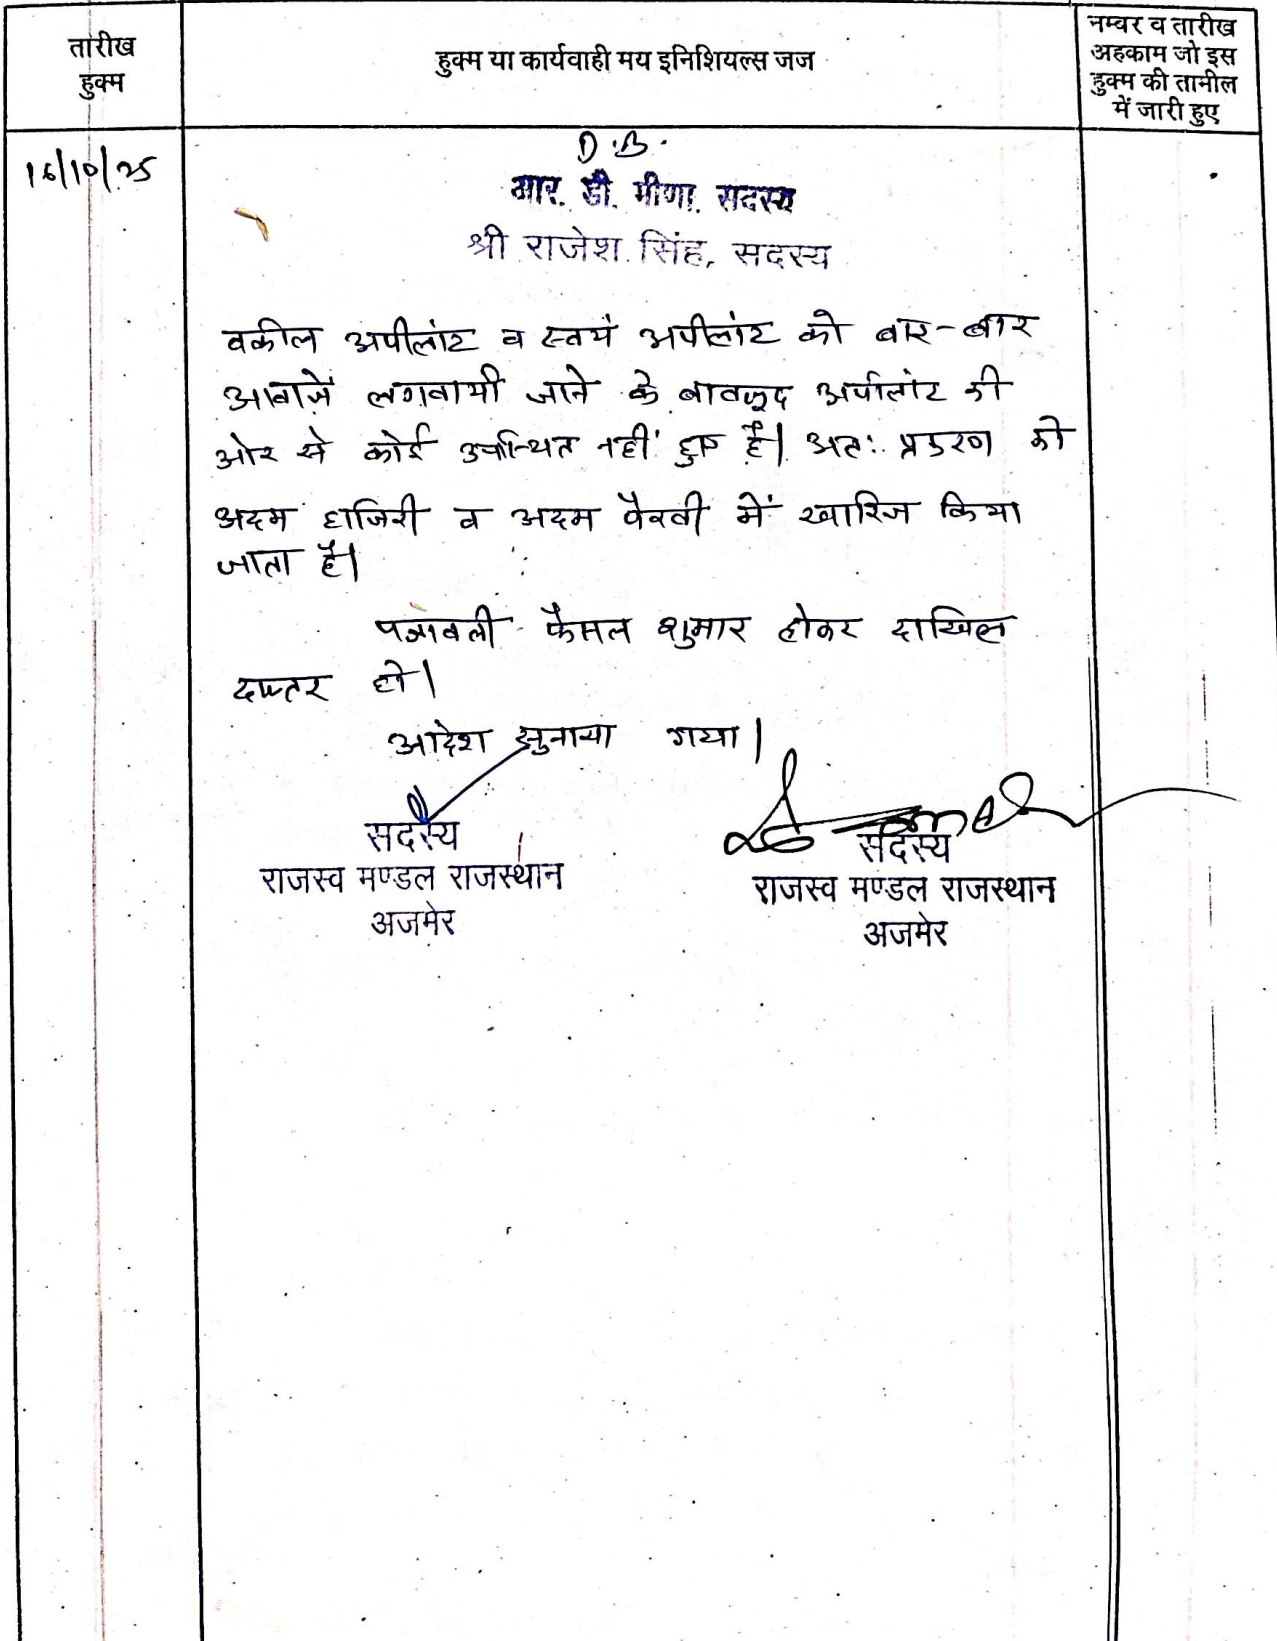 तारीख
हुक्म
हुक्म या कार्यवाही मय इनिशियल्स जज
नम्बर व तारीख
अहकाम जो इस
हुक्म की तामील
में जारी हुए
16/10/25
D.B.
आर. डी. मीणा. सदस्य
श्री राजेश सिंह, सदस्य
वकील अपीलांट व स्वयं अपीलांट को बार-बार
आवाजें लगवायी जाने के बावजूद अपीलांट की
ओर से कोई उपस्थित नहीं हुए है। अतः प्रकरण को
अदम हाजिरी व अदम पैरवी में खारिज किया
जाता है।
पत्रावली फैसल शुमार होकर दाखिल
दफ्तर हो।
आदेश सुनाया गया।
सदस्य
राजस्व मण्डल राजस्थान
अजमेर
सदस्य
राजस्व मण्डल राजस्थान
अजमेर